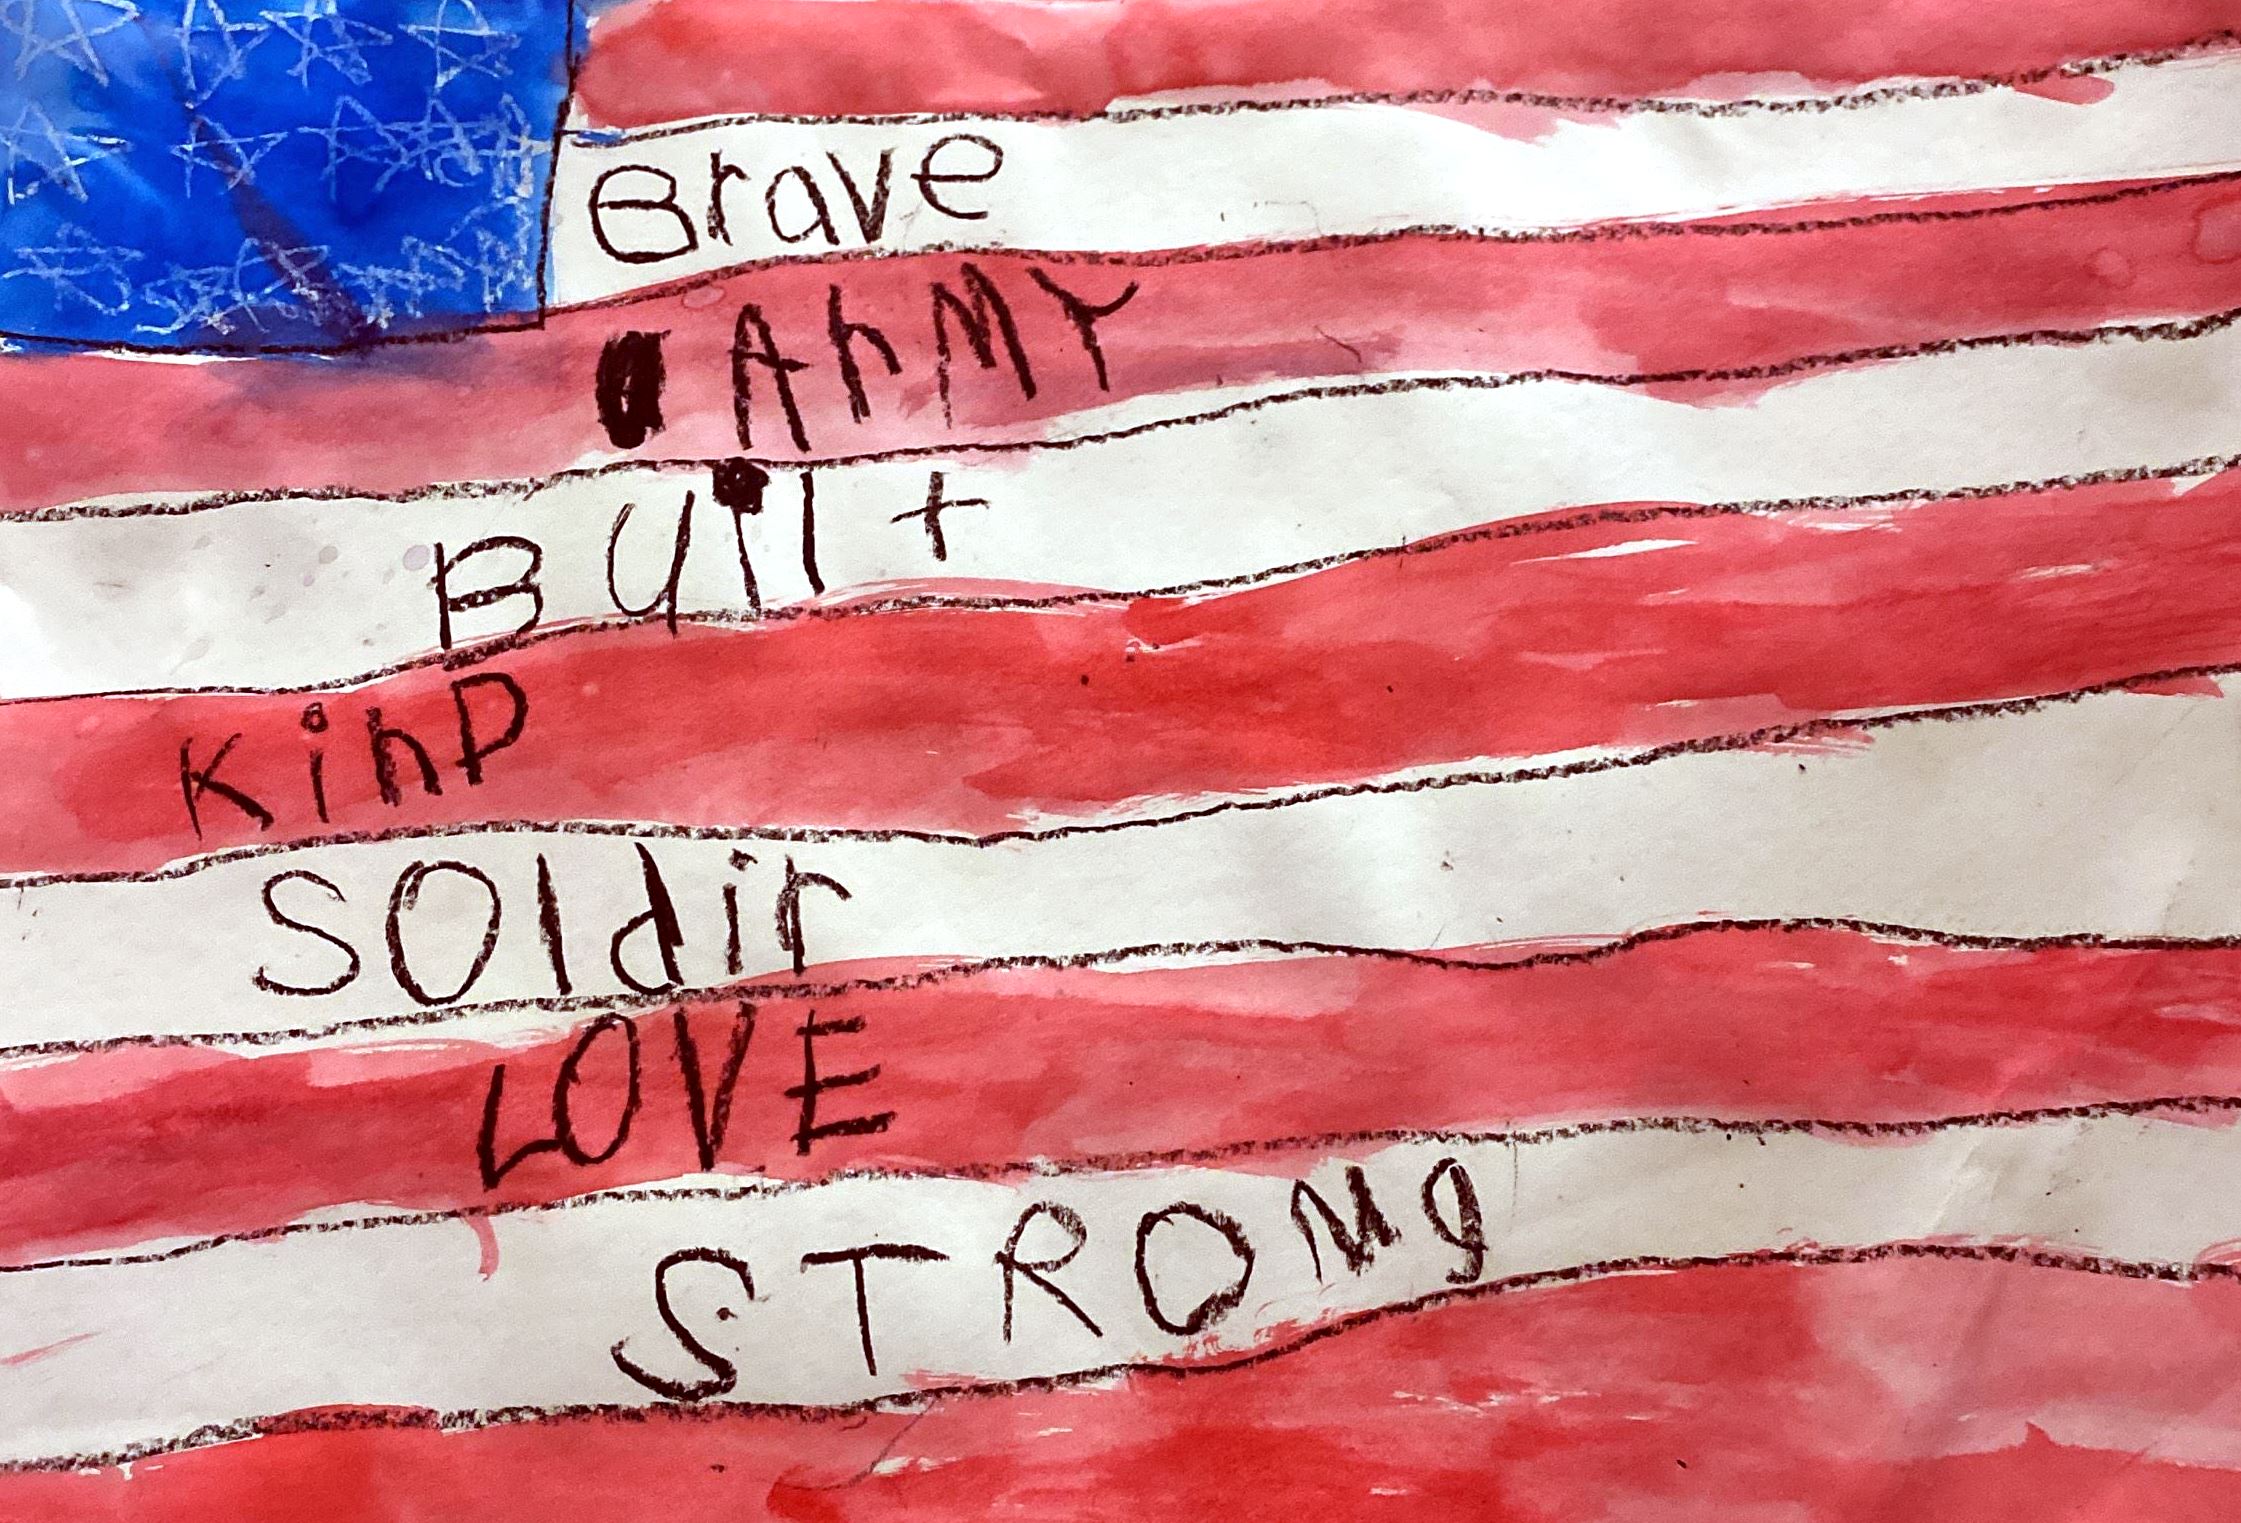 Brave
ARMY
Built
KinD
SOldir
LOVE
STRONg